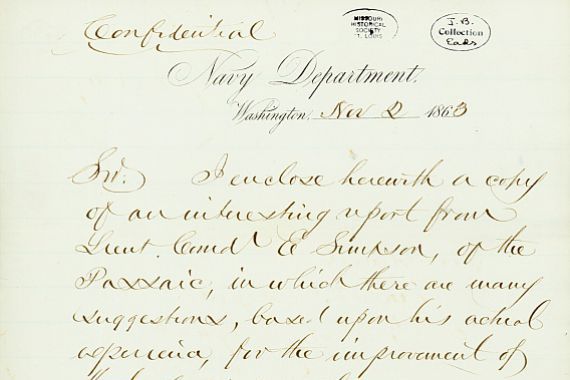 Confidential
MISSOURI
HISTORICAL
SOCIETY
ST. LOUIS
J. B.
Collection
Eads
Navy Department,
Washington, Nov 2 1863
Sir. I enclose herewith a copy
of an interesting report from
Lieut. Comdr E Simpson, of the
Passaic, in which there are many
suggestions, based upon his actual
experience, for the improvement of